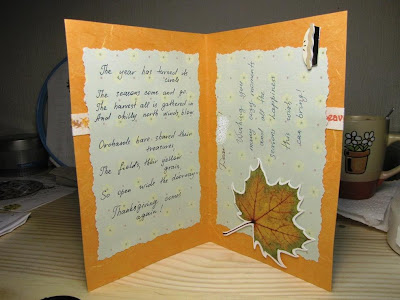 The year has turned its
circle
The seasons come and go.
The harvest all is gathered in
And chilly north winds blow
Orchards have shared their
treasures
The fields, their yellow
grain
So open wide the doorway-
Thanksgiving comes
again!
Wishing you
many cozy moments
and all the
serene happiness
this season
can bring!